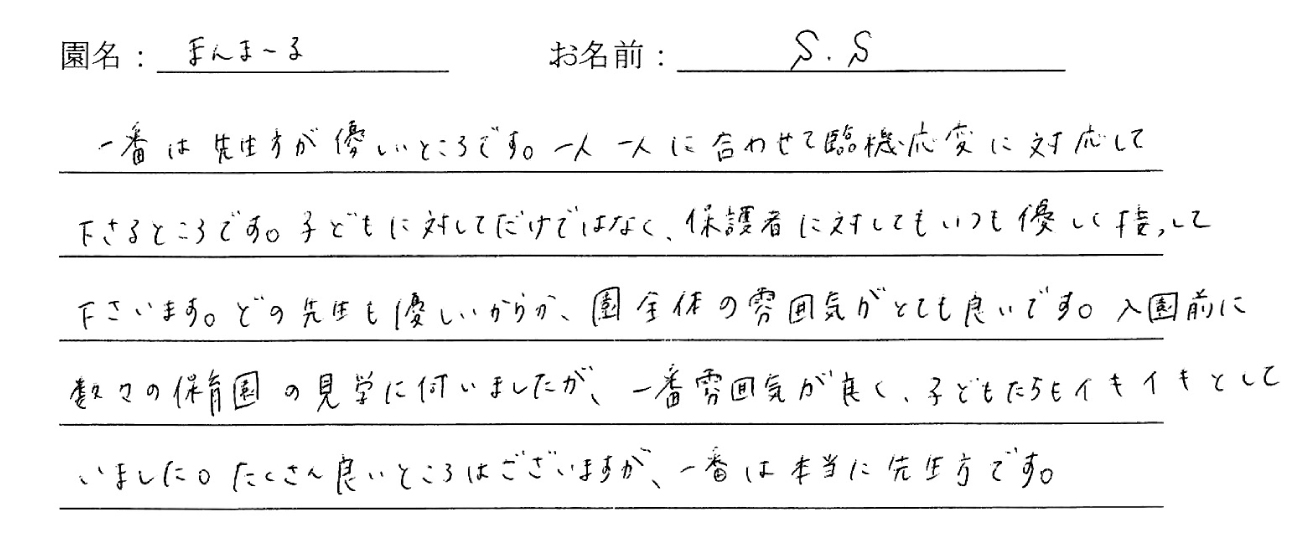 園名：まんま～る　お名前：S.S
一番は先生方が優しいところです。一人一人に合わせて臨機応変に対応して
下さるところです。子どもに対してだけではなく、保護者に対してもいつも優しく接して
下さいます。どの先生も優しいからか、園全体の雰囲気がとても良いです。入園前に
数々の保育園の見学に行いましたが、一番雰囲気が良く、子どもたちもイキイキとして
いました。たくさん良いところはございますが、一番は本当に先生方です。